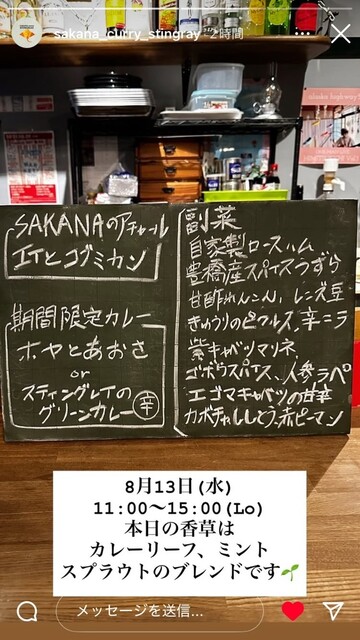 sakana_curry_stingray 2時間
SAKANAのアチャール
エイとコブミカン
期間限定カレー
ホヤとあおさ
or
スティングレイの
グリーンカレー 辛
副菜
自家製ロースハム
豊橋産スパイスうずら
甘酢れんこん、レンズ豆
きゅうりのピクルス、辛ニラ
紫キャベツマリネ、
ゴボウスパイス、人参ラペ
エゴマキャベツの甘辛
カボチャ、ししとう、赤ピーマン
8月13日(水)
11:00〜15:00(Lo)
本日の香草は
カレーリーフ、ミント
スプラウトのブレンドです🌱
メッセージを送信...